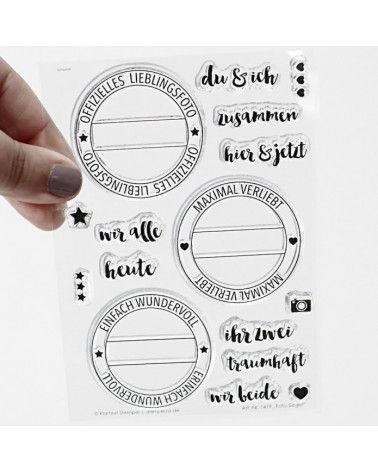 OFFIZIELLES LIEBLINGSFOTO
OFFIZIELLES LIEBLINGSFOTO
du & ich
zusammen
hier & jetzt
MAXIMAL VERLIEBT
MAXIMAL VERLIEBT
wir alle
heute
EINFACH WUNDERVOLL
EINFACH WUNDERVOLL
ihr zwei
traumhaft
wir beide